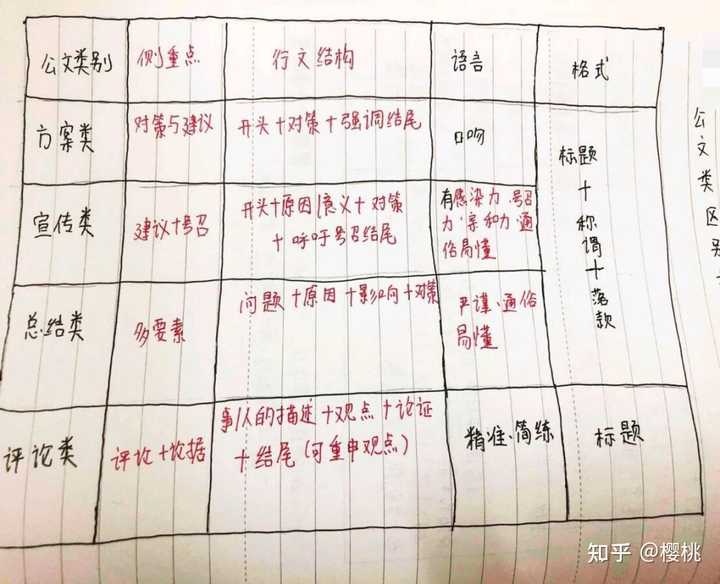 公文类别 侧重点 行文结构 语言 格式
方案类 对策与建议 开头+对策+强调结尾 口吻 标题+称谓+落款
宣传类 建议+号召 开头+原因|意义+对策
+呼吁号召结尾
有感染力·号召
力·亲和力·通
俗易懂
总结类 多要素 问题+原因+影响+对策 严谨·通俗
易懂
评论类 评论+论据 事/人的描述+观点+论证
+结尾(可重申观点)
精准·简练 标题
公文类区别
知乎 @樱桃